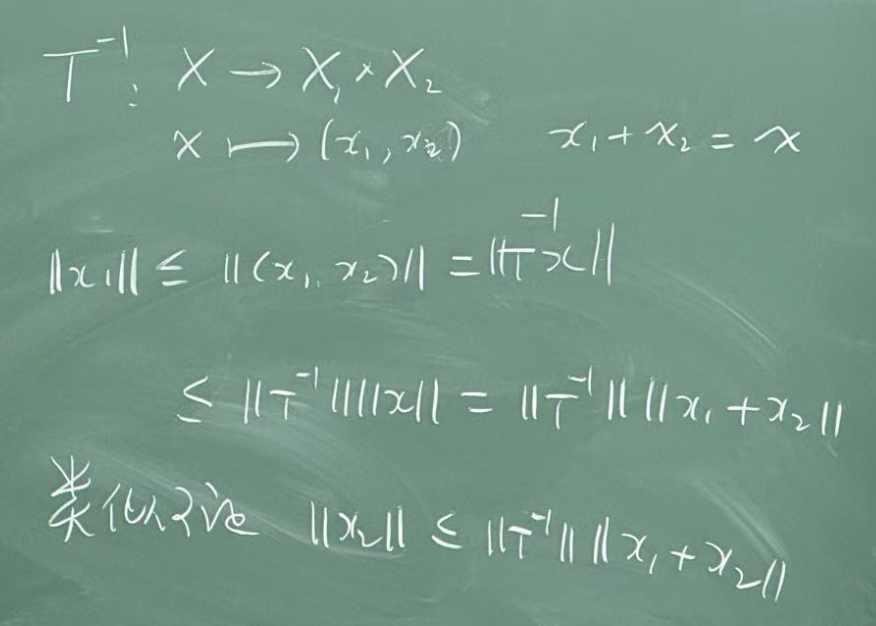 T⁻¹: X → X₁ × X₂
x ⟼ (x₁, x₂)    x₁ + x₂ = x
‖x₁‖ ≤ ‖(x₁, x₂)‖ = ‖T⁻¹x‖
≤ ‖T⁻¹‖‖x‖ = ‖T⁻¹‖ ‖x₁ + x₂‖
类似可证 ‖x₂‖ ≤ ‖T⁻¹‖ ‖x₁ + x₂‖